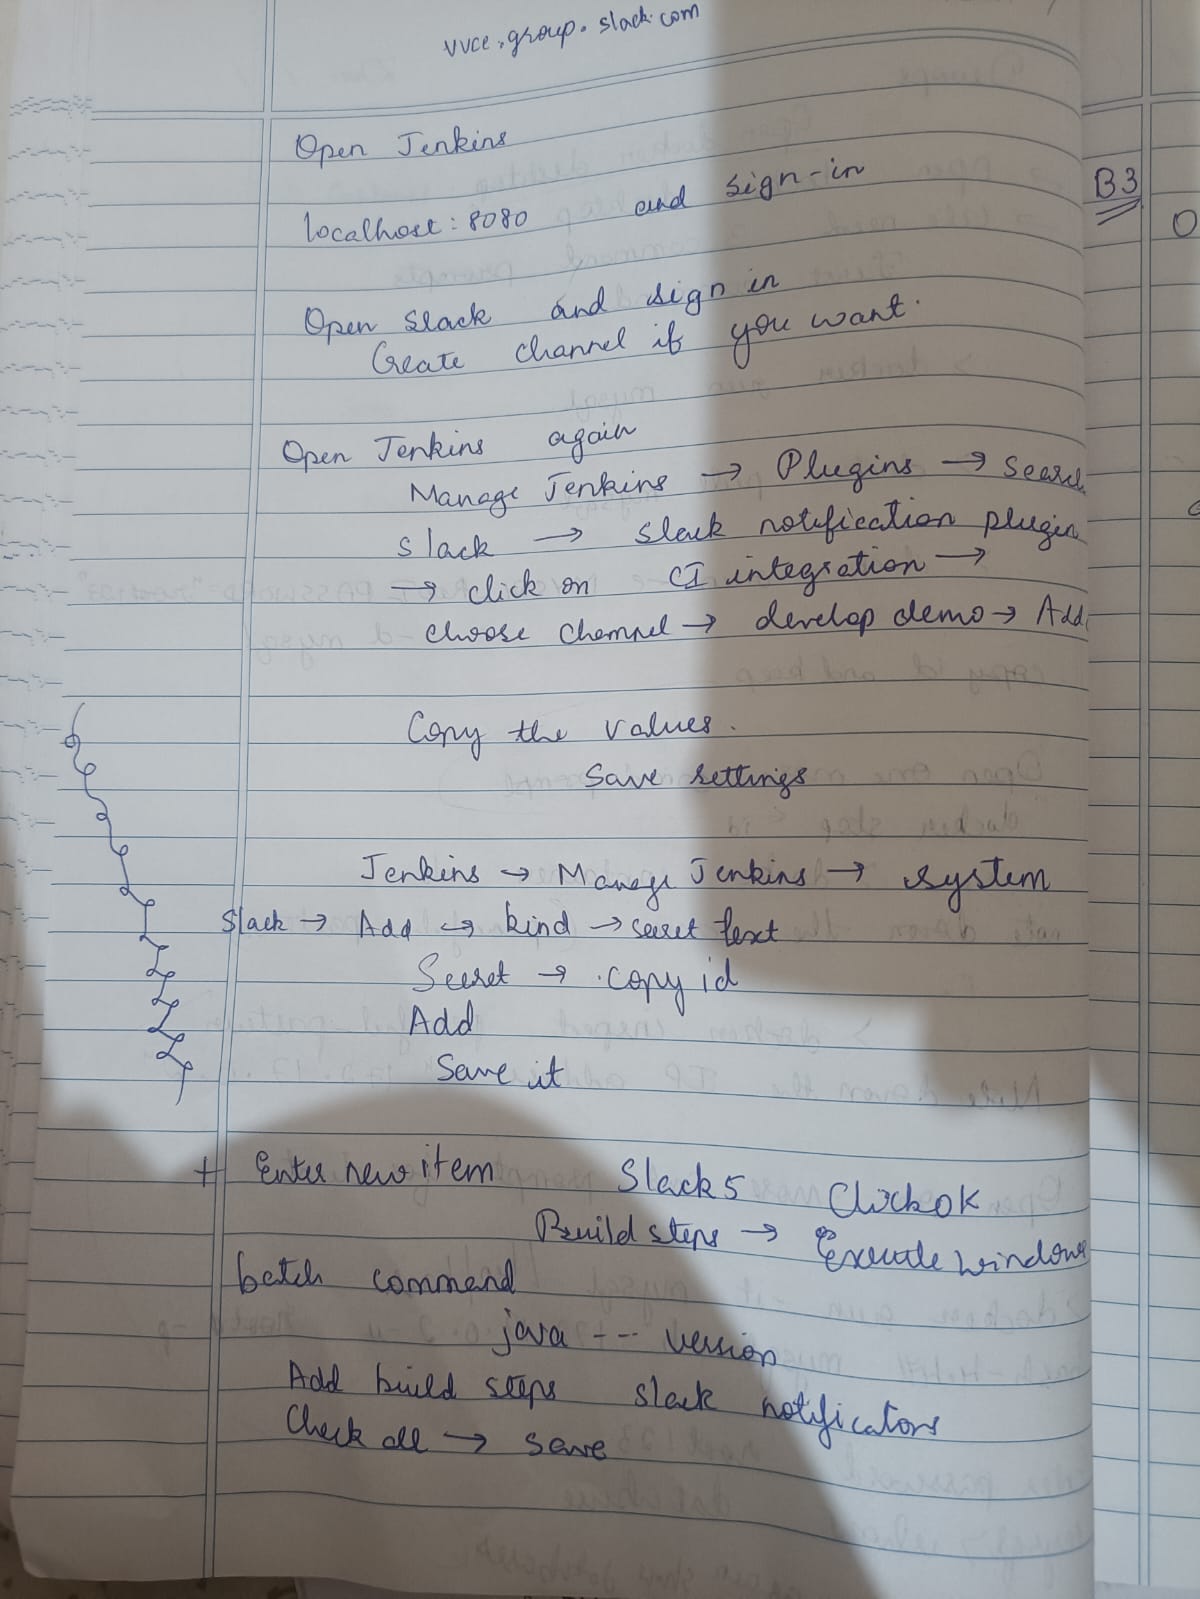 vvce.group.slack.com
Open Jenkins
localhost:8080 and sign-in
B3
Open slack and sign in
Create channel if you want.
Open Jenkins again
Manage Jenkins → Plugins → Search
slack → slack notification plugin
→ click on CI integration →
choose channel → develop demo → Add
Copy the values.
Save settings
Jenkins → Manage Jenkins → system
Slack → Add → kind → secret text
Secret → copy id
Add
Save it
+ Enter new item Slack5 Click OK
Build steps → Execute windows
batch command
java -- version
Add build steps slack notificators
Check all → save